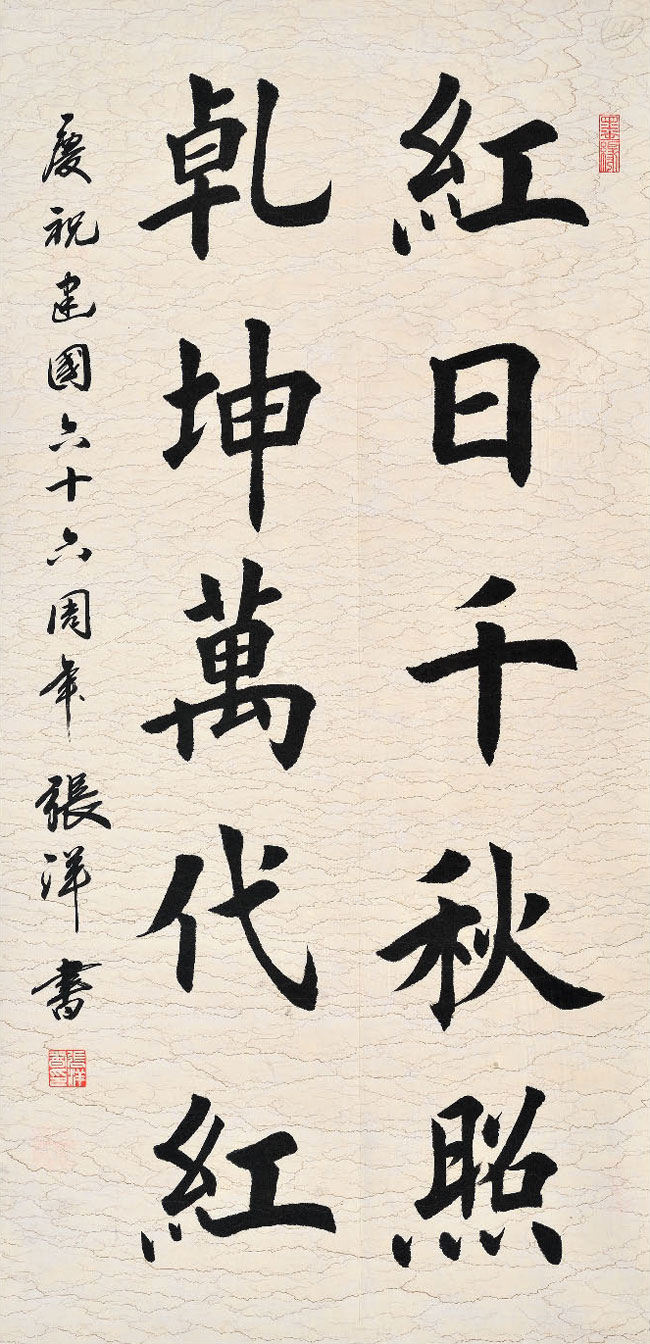 紅日千秋照
乹坤萬代紅
慶祝建國六十六周年 張洋書